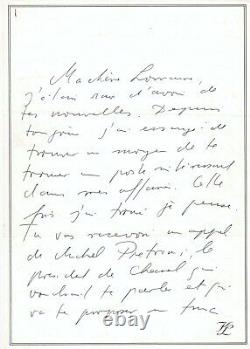 1
Ma chère Lorraine,
j'étais ravi d'avoir de
tes nouvelles. Depuis
toujours j'ai essayé de
trouver un moyen de te
trouver un poste intéressant
dans mes affaires. Cette
fois j'ai trouvé je pense.
Tu vas recevoir un appel
de Michel Pietrini, le
président de Chanel qui
voudrait te parler et qui
va te proposer un truc
KL